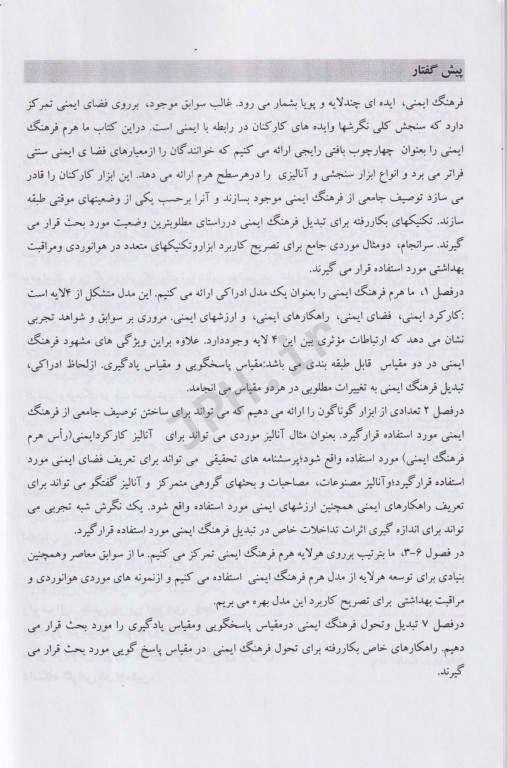 پیش گفتار
فرهنگ ایمنی، ایده ای چندلایه و پویا بشمار می رود. غالب سوابق موجود، برروی فضای ایمنی تمرکز
دارد که سنجش کلی نگرشها وایده های کارکنان در رابطه با ایمنی است. دراین کتاب ما هرم فرهنگ
ایمنی را بعنوان چهارچوب بافتی رایجی ارائه می کنیم که خوانندگان را ازمعیارهای فضا ی ایمنی سنتی
فراتر می برد و انواع ابزار سنجشی و آنالیزی را درهرسطح هرم ارائه می دهد. این ابزار کارکنان را قادر
می سازد توصیف جامعی از فرهنگ ایمنی موجود بسازند و آنرا برحسب یکی از وضعیتهای موقتی طبقه
سازند. تکنیکهای بکاررفته برای تبدیل فرهنگ ایمنی درراستای مطلوبترین وضعیت مورد بحث قرار می
گیرند. سرانجام، دومثال موردی جامع برای تصریح کاربرد ابزاروتکنیکهای متعدد در هوانوردی ومراقبت
بهداشتی مورد استفاده قرار می گیرند.
درفصل ۱، ما هرم فرهنگ ایمنی را بعنوان یک مدل ادراکی ارائه می کنیم. این مدل متشکل از ۴لایه است
:کارکرد ایمنی، فضای ایمنی، راهکارهای ایمنی، و ارزشهای ایمنی. مروری بر سوابق و شواهد تجربی
نشان می دهد که ارتباطات مؤثری بین این ۴ لایه وجوددارد. علاوه براین ویژگی های مشهود فرهنگ
ایمنی در دو مقیاس قابل طبقه بندی می باشد:مقیاس پاسخگویی و مقیاس یادگیری. ازلحاظ ادراکی،
تبدیل فرهنگ ایمنی به تغییرات مطلوبی در هردو مقیاس می انجامد.
درفصل ۲ تعدادی از ابزار گوناگون را ارائه می دهیم که می تواند برای ساختن توصیف جامعی از فرهنگ
ایمنی مورد استفاده قرارگیرد. بعنوان مثال آنالیز موردی می تواند برای آنالیز کارکردایمنی(رأس هرم
فرهنگ ایمنی) مورد استفاده واقع شود؛پرسشنامه های تحقیقی می تواند برای تعریف فضای ایمنی مورد
استفاده قرارگیرد؛وآنالیز مصنوعات، مصاحبات و بحثهای گروهی متمرکز و آنالیز گفتگو می تواند برای
تعریف راهکارهای ایمنی همچنین ارزشهای ایمنی مورد استفاده واقع شود. یک نگرش شبه تجربی می
تواند برای اندازه گیری اثرات تداخلات خاص در تبدیل فرهنگ ایمنی مورد استفاده قرارگیرد.
در فصول ۶-۳، ما بترتیب برروی هرلایه هرم فرهنگ ایمنی تمرکز می کنیم. ما از سوابق معاصر وهمچنین
بنیادی برای توسعه هرلایه از مدل هرم فرهنگ ایمنی استفاده می کنیم و ازنمونه های موردی هوانوردی و
مراقبت بهداشتی برای تصریح کاربرد این مدل بهره می بریم.
درفصل ۷ تبدیل وتحول فرهنگ ایمنی درمقیاس پاسخگویی ومقیاس یادگیری را مورد بحث قرار می
دهیم. راهکارهای خاص بکاررفته برای تحول فرهنگ ایمنی در مقیاس پاسخ گویی مورد بحث قرار می
گیرند.
JPH.ir